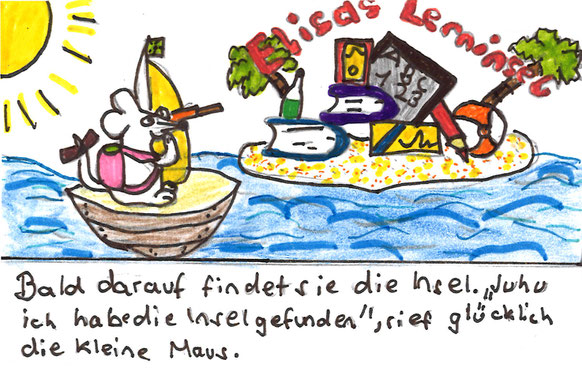 Elisas Lerninsel
ABC
123
Bald darauf findet sie die Insel. „Juhu
ich habe die Insel gefunden", rief glücklich
die kleine Maus.